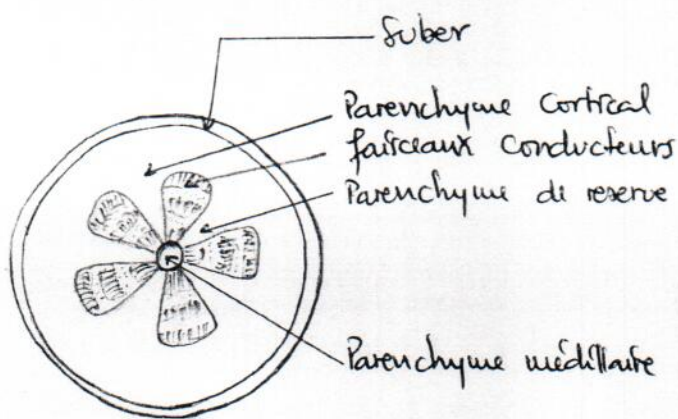 Suber
Parenchyme Cortical
faisceaux Conducteurs
Parenchyme de reserve
Parenchyme médillaire